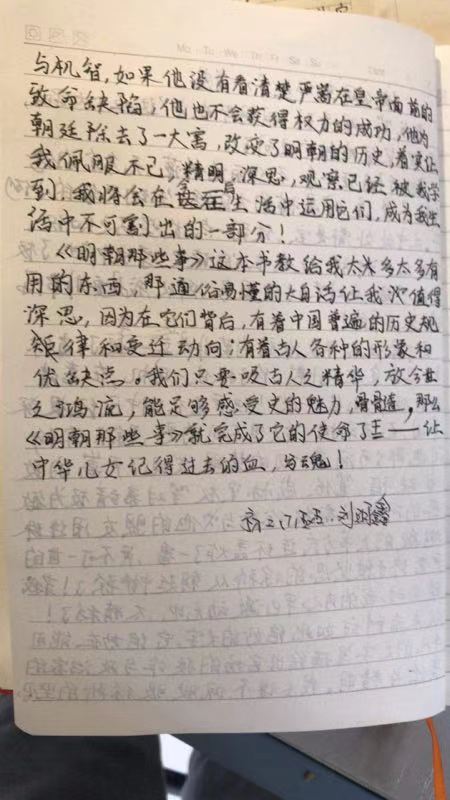 Mo Tu We Th Fr Sa Su
与机智，如果他没有看清楚严嵩在皇帝面前的
致命缺陷，他也不会获得权力的成功，他为
朝廷除去了一大害，改变了明朝的历史，着实让
我佩服不已，精明，深思，观察已经被我学
到，我将会在生活中运用它们，成为我生
活中不可割出的一部分！
《明朝那些事》这本书教给我太多太多有
用的东西，那通俗易懂的大白话让我值得
深思，因为在它们背后，有着中国普遍的历史规
律和变迁动向；有着古人各种的形象和
优缺点。我们只要吸古人之精华，放今世
之鸿流，能足够感受史的魅力，骨髓，那么
《明朝那些事》就完成了它的使命了——让
中华儿女记得过去的血，与魂！